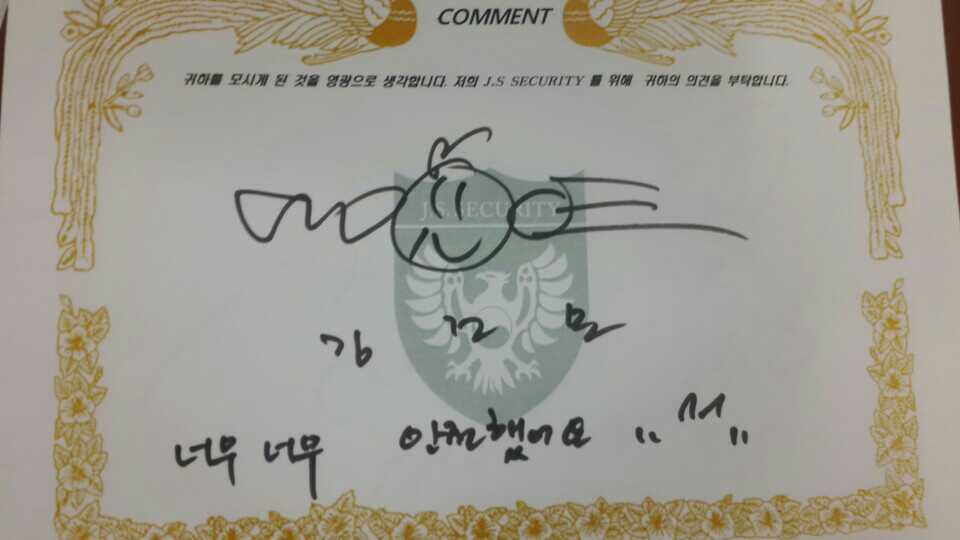 COMMENT
귀하를 모시게 된 것을 영광으로 생각합니다. 저희 J.S SECURITY 를 위해 귀하의 의견을 부탁합니다.
J.S. SECURITY
김건모
너무 너무 안전했어요